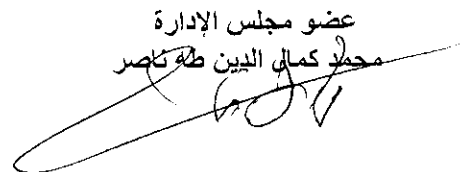 عضو مجلس الإدارة
محمد كمال الدين طه ناصر